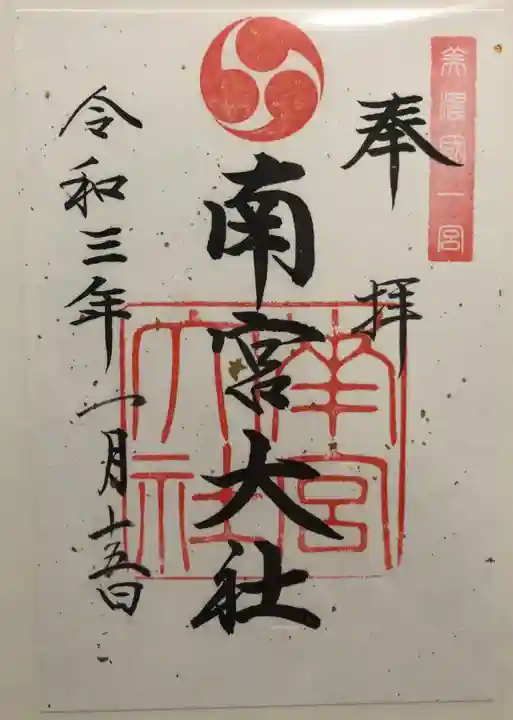 美濃國一宮
奉拝
南宮大社
南宮大社
令和三年一月十五日